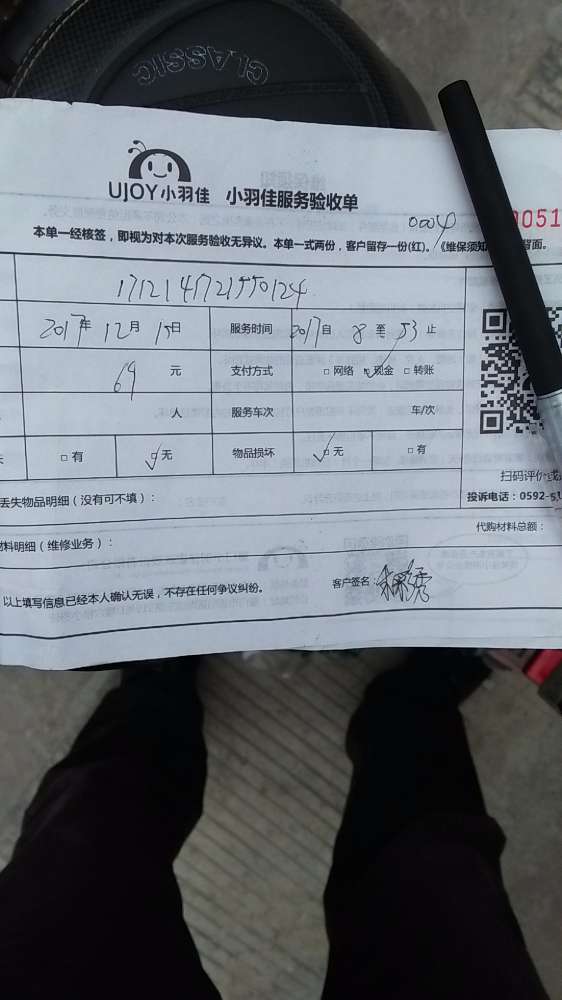 CLASSIC
UJOY小羽佳 小羽佳服务验收单
0004
0051
本单一经核签，即视为对本次服务验收无异议。本单一式两份，客户留存一份(红)。《维保须知 背面。
2017年 12月 15日 服务时间 2017自 8至 53止
69 元 支付方式 □网络 ☑现金 □转账
人 服务车次 车/次
□有 ☑无 物品损坏 ☑无 □有
扫码评价或
丢失物品明细（没有可不填）： 投诉电话：0592-5
代购材料总额：
材料明细（维修业务）：
以上填写信息已经本人确认无误，不存在任何争议纠纷。 客户签名：